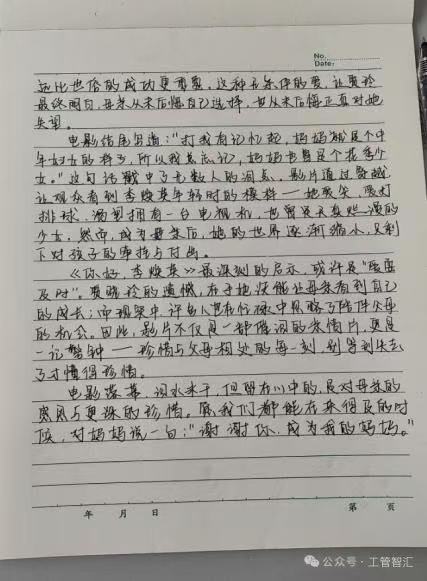 No.
Date:
远比世俗的成功更重要。这种无条件的爱,让贾玲
最终明白,母亲从未后悔自己选择,也从未后悔正真对她
失望。
电影结尾写道:"打我有记忆起,妈妈就是个中
年妇女的样子,所以我总忘记,妈妈也曾是个花季少
女。"这句话戳中了无数人的泪点。影片通过穿越,
让观众看到李焕英年轻时的模样——她爱笑,爱打
排球,渴望拥有一台电视机,也曾是天真烂漫的
少女。然而,成为母亲后,她的世界逐渐缩小,只剩
下对孩子的牵挂与付出。
《你好,李焕英》最深刻的启示,或许是"尽孝
及时"。贾晓玲的遗憾,在于她没能让母亲看到自己
的成长;而现实中,许多人也在忙碌中忽略了陪伴父母
的机会。因此,影片不仅是一部催泪的亲情片,更是
一记警钟——珍惜与父母相处的每一刻,别等到失去
了才懂得珍惜。
电影落幕,泪水未干,但留在心中的,是对母亲的
更深的珍惜。愿我们都能在来得及的时
候,对妈妈说一句:"谢谢你,成为我的妈妈。"
年 月 日 第 页
公众号·工管智汇